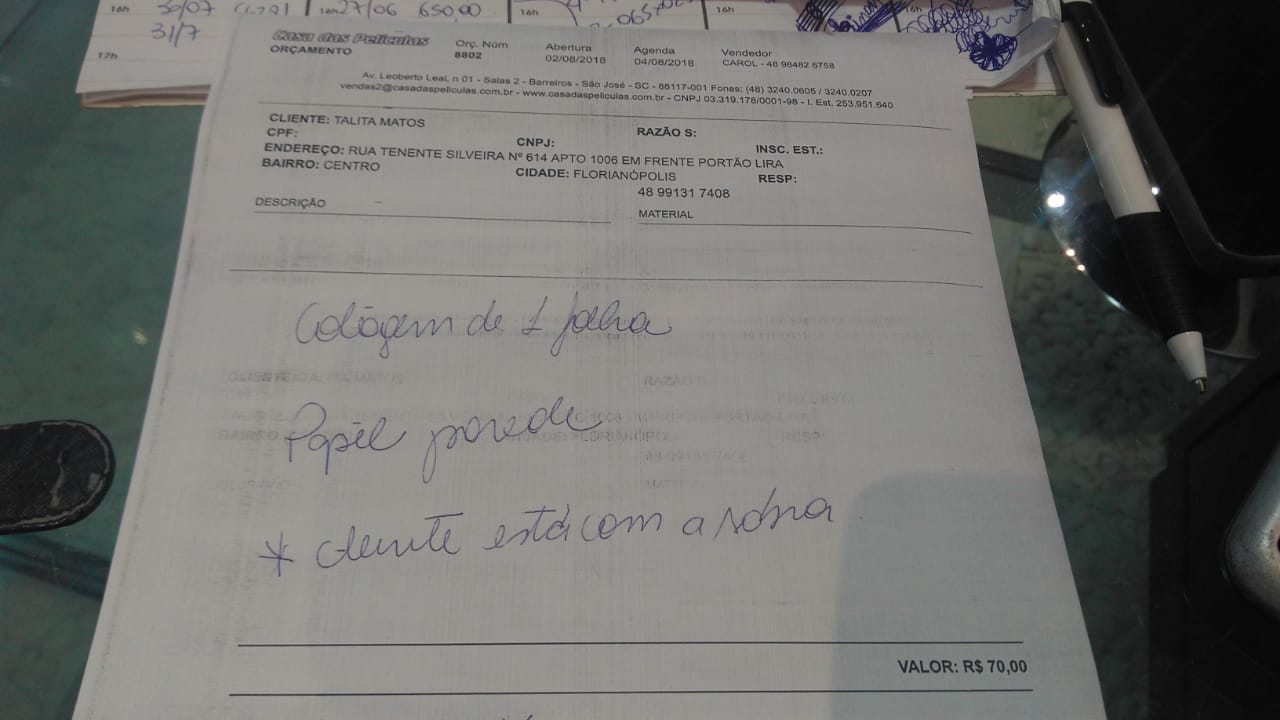 16h 30/07 16h 27/06 650,00 16h 16h 16h
31/7
17h
Casa das Películas
ORÇAMENTO
Orç. Núm
8802
Abertura
02/08/2018
Agenda
04/08/2018
Vendedor
CAROL - 48 98482 6758
Av. Leoberto Leal, n 01 - Salas 2 - Barreiros - São José - SC - 88117-001 Fones: (48) 3240.0605 / 3240.0207
vendas2@casadaspeliculas.com.br - www.casadaspeliculas.com.br - CNPJ 03.319.178/0001-98 - I. Est. 253.951.640
CLIENTE: TALITA MATOS
CPF: CNPJ: RAZÃO S: INSC. EST.:
ENDEREÇO: RUA TENENTE SILVEIRA Nº 614 APTO 1006 EM FRENTE PORTÃO LIRA
BAIRRO: CENTRO CIDADE: FLORIANÓPOLIS RESP:
48 99131 7408
DESCRIÇÃO MATERIAL
Colagem de 1 folha
Papel parede
* cliente está com a sobra
VALOR: R$ 70,00